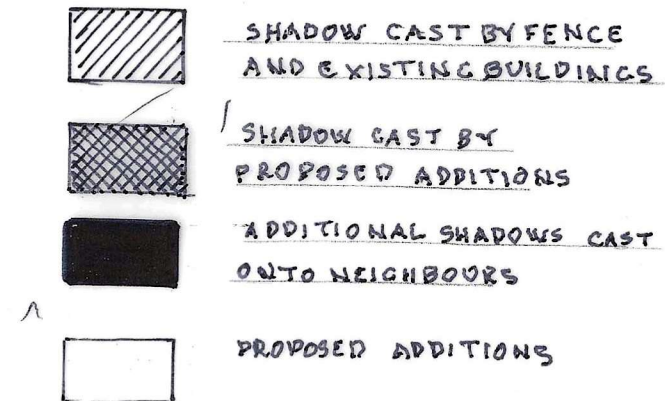 SHADOW CAST BY FENCE
AND EXISTING BUILDINGS
SHADOW CAST BY
PROPOSED ADDITIONS
ADDITIONAL SHADOWS CAST
ONTO NEIGHBOURS
PROPOSED ADDITIONS